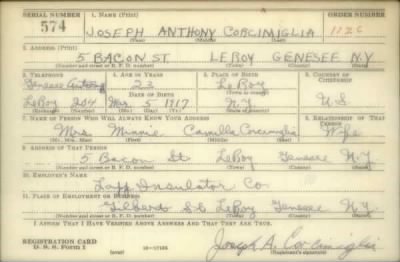 SERIAL NUMBER 1. NAME (Print) ORDER NUMBER
574 JOSEPH ANTHONY CORCIMIGLIA 1126
(First) (Middle) (Last)
2. ADDRESS (Print)
5 BACON ST. LEROY GENESEE N.Y.
(Number and street or R. F. D. number) (Town) (County) (State)
3. TELEPHONE 4. AGE IN YEARS 5. PLACE OF BIRTH 6. COUNTRY OF CITIZENSHIP
23 LeRoy
DATE OF BIRTH (Town or county)
LeRoy 204 Mar. 5 1917 N.Y. U.S.
(Exchange) (Number) (Mo.) (Day) (Yr.) (State or country)
7. NAME OF PERSON WHO WILL ALWAYS KNOW YOUR ADDRESS 8. RELATIONSHIP OF THAT PERSON
Mrs. Minnie Camilla Corcimiglia Wife
(Mr., Mrs., Miss) (First) (Middle) (Last)
9. ADDRESS OF THAT PERSON
5 Bacon St LeRoy Genesee N.Y.
(Number and street or R. F. D. number) (Town) (County) (State)
10. EMPLOYER'S NAME
Lapp Insulator Co.
11. PLACE OF EMPLOYMENT OR BUSINESS
Gilbert St LeRoy Genesee N.Y.
(Number and street or R. F. D. number) (Town) (County) (State)
I AFFIRM THAT I HAVE VERIFIED ABOVE ANSWERS AND THAT THEY ARE TRUE.
REGISTRATION CARD
D. S. S. Form 1 (over) Joseph A. Corcimiglia
(Registrant's signature)